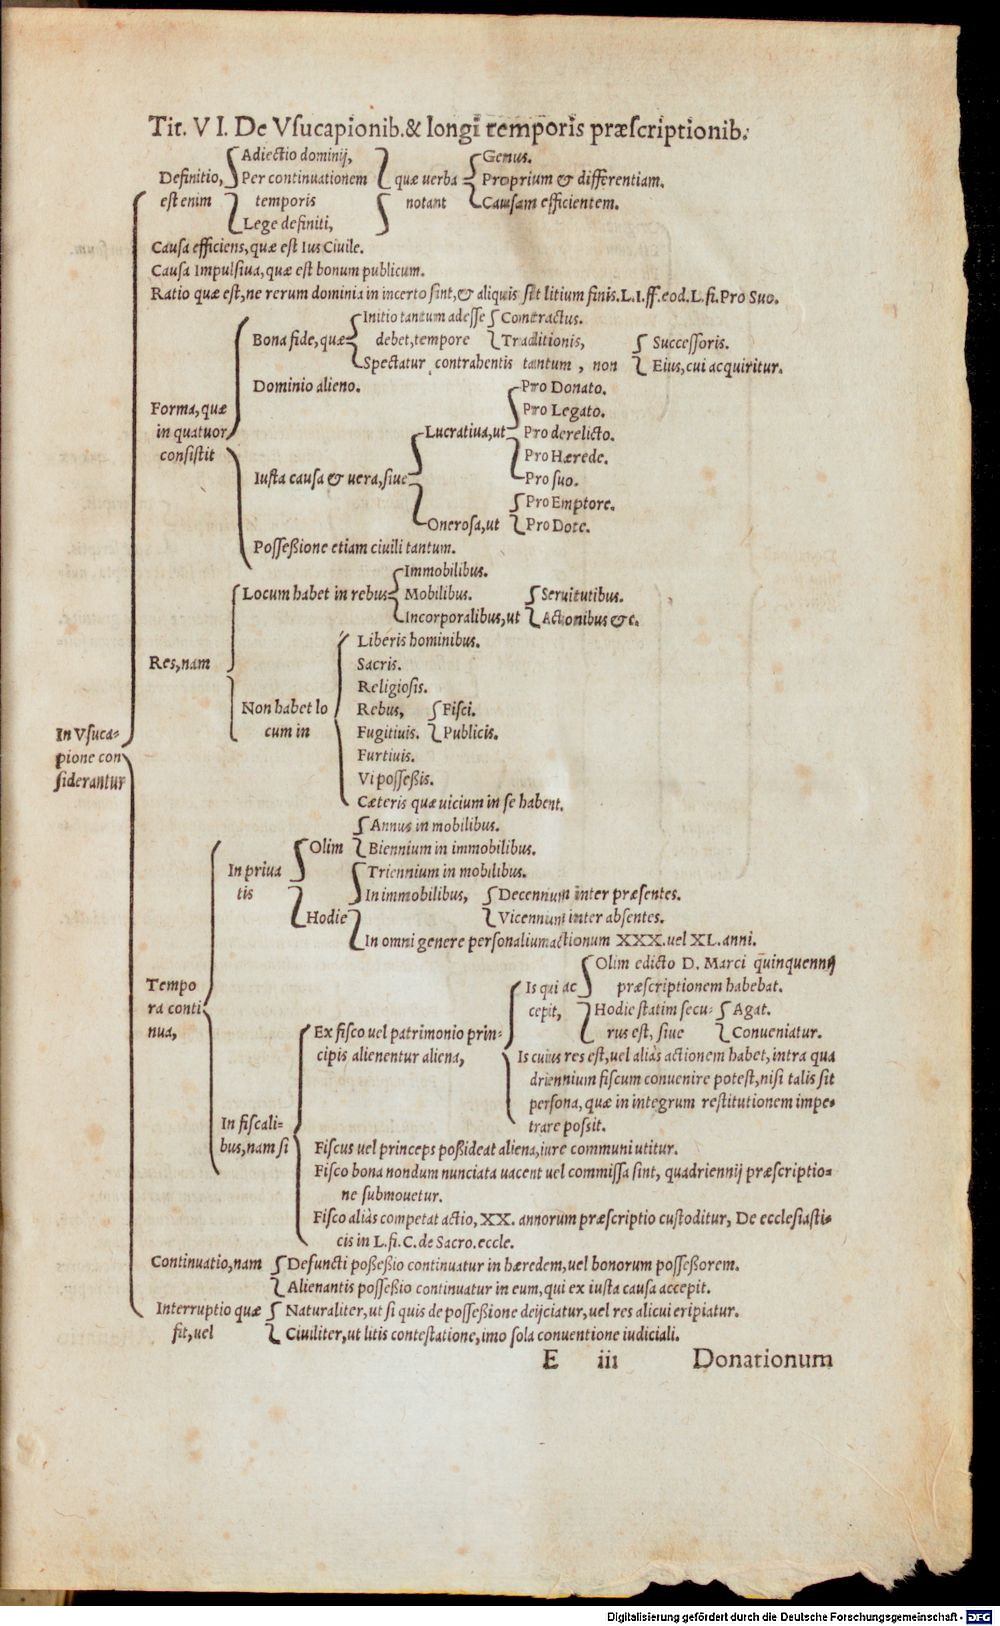 Tit. VI. De Vsucapionib. & longi temporis præscriptionib.
Adiectio dominij,
Genus.
Definitio, Per continuationem quæ uerba Proprium & differentiam.
est enim temporis notant Causam efficientem.
Lege definiti,
Causa efficiens, quæ est Ius Ciuile.
Causa Impulsiua, quæ est bonum publicum.
Ratio quæ est, ne rerum dominia in incerto sint, & aliquis sit litium finis. L.I.ff.eod.L.fi.Pro Suo.
Initio tantum adesse Contractus.
Bona fide, quæ debet, tempore Traditionis, Successoris.
Spectatur contrahentis tantum, non Eius, cui acquiritur.
Dominio alieno. Pro Donato.
Forma, quæ Pro Legato.
in quatuor Lucratiua, ut Pro derelicto.
consistit Pro Hærede.
Iusta causa & uera, siue Pro suo.
Pro Emptore.
Onerosa, ut Pro Dote.
Posseßione etiam ciuili tantum.
Immobilibus.
Locum habet in rebus Mobilibus. Seruitutibus.
Incorporalibus, ut Actionibus &c.
Liberis hominibus.
Res, nam Sacris.
Religiosis.
Non habet lo Rebus, Fisci.
In Vsuca- cum in Fugitiuis. Publicis.
pione con Furtiuis.
siderantur Vi posseßis.
Cæteris quæ uicium in se habent.
Annus in mobilibus.
Olim Biennium in immobilibus.
In priua Triennium in mobilibus.
tis In immobilibus, Decennum inter præsentes.
Hodie Vicennum inter absentes.
In omni genere personalium actionum XXX. uel XL. anni.
Olim edicto D. Marci quinquennij
Tempo Is qui ac præscriptionem habebat.
ra conti cepit, Hodie statim secu- Agat.
nua, Ex fisco uel patrimonio prin- rus est, siue Conueniatur.
cipis alienentur aliena, Is cuius res est, uel aliàs actionem habet, intra qua
driennium fiscum conuenire potest, nisi talis sit
persona, quæ in integrum restitutionem impe-
In fiscali- trare possit.
bus, nam si Fiscus uel princeps poßideat aliena, iure communi utitur.
Fisco bona nondum nunciata uacent uel commissa sint, quadriennij præscriptio-
ne submouetur.
Fisco aliàs competat actio, XX. annorum præscriptio custoditur, De ecclesiasti-
cis in L.fi.C.de Sacro.eccle.
Continuatio, nam Defuncti poßeßio continuatur in hæredem, uel bonorum posseßorem.
Alienantis posseßio continuatur in eum, qui ex iusta causa accepit.
Interruptio quæ Naturaliter, ut si quis de posseßione deijciatur, uel res alicui eripiatur.
fit, uel Ciuiliter, ut litis contestatione, imo sola conuentione iudiciali.
E iii Donationum
Digitalisierung gefördert durch die Deutsche Forschungsgemeinschaft - DFG